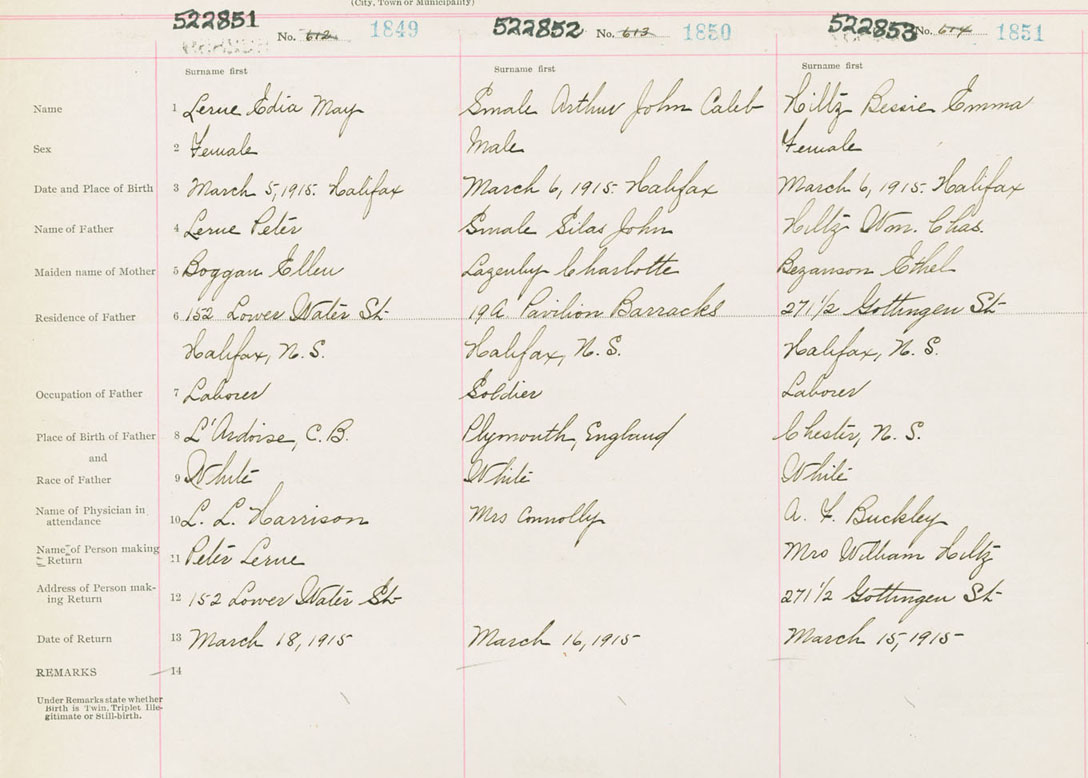 (City, Town or Municipality)
522851 No. 612 1849 522852 No. 613 1850 522853 No. 614 1851
Surname first Surname first Surname first
Name 1 Lerue Edia May Smale Arthur John Caleb Hiltz Bessie Emma
Sex 2 Female Male Female
Date and Place of Birth 3 March 5, 1915 Halifax March 6, 1915 Halifax March 6, 1915 Halifax
Name of Father 4 Lerue Peter Smale Silas John Hiltz Wm. Chas.
Maiden name of Mother 5 Boggan Ellen Lazenby Charlotte Bezanson Ethel
Residence of Father 6 152 Lower Water St 19A Pavilion Barracks 271 1/2 Gottingen St
Halifax, N. S. Halifax, N. S. Halifax, N. S.
Occupation of Father 7 Laborer Soldier Laborer
Place of Birth of Father 8 L'Ardoise, C. B. Plymouth, England Chester, N. S.
and
Race of Father 9 White White White
Name of Physician in
attendance 10 L. L. Harrison Mrs Connolly A. F. Buckley
Name of Person making
Return 11 Peter Lerue Mrs William Hiltz
Address of Person mak-
ing Return 12 152 Lower Water St 271 1/2 Gottingen St
Date of Return 13 March 18, 1915 March 16, 1915 March 15, 1915
REMARKS 14
Under Remarks state whether
Birth is Twin, Triplet Ille-
gitimate or Still-birth.